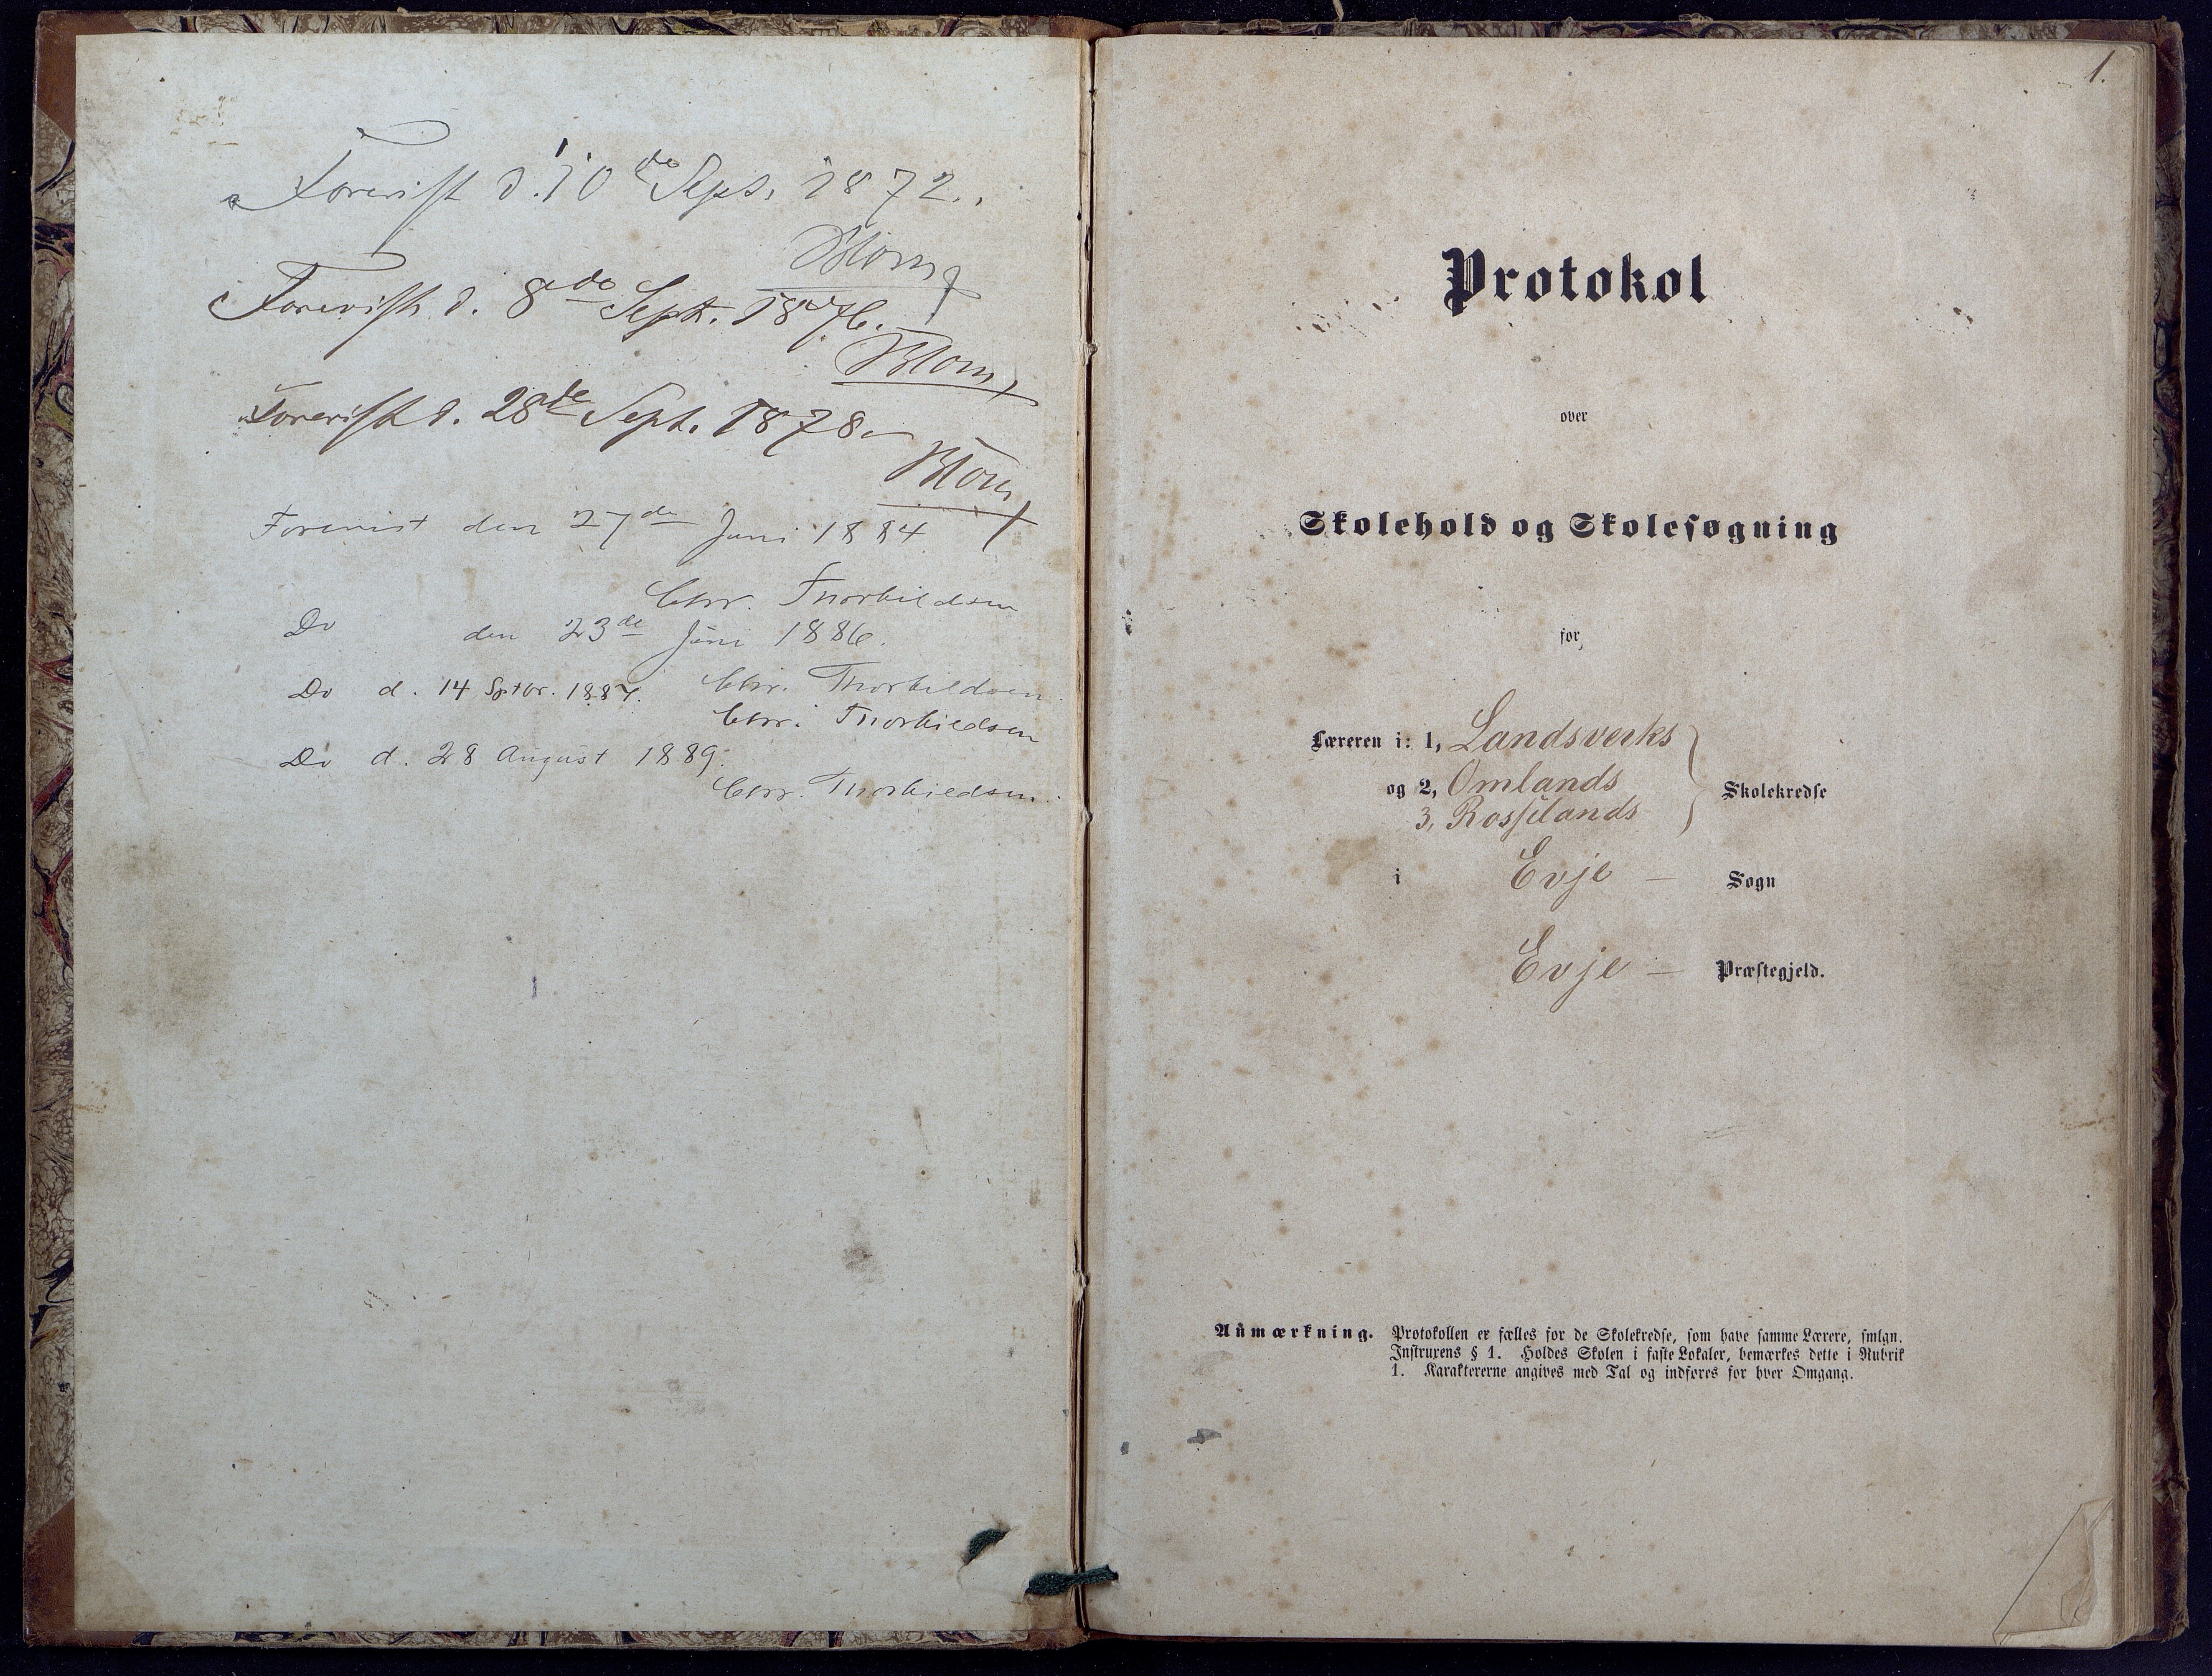 Forevist d. 10de Sept. 1872.
Blom
Forevist d. 8de Sept. 1876.
Blom
Forevist d. 28de Sept. 1878.
Blom
Forevist den 27de Juni 1884
Chr. Thorkildsen
Do den 23de Juni 1886.
Chr. Thorkildsen
Do d. 14 Sptbr. 1887.
Chr. Thorkildsen
Do d. 28 August 1889.
Chr. Thorkildsen
1.
Protokol
over
Skolehold og Skolesøgning
for
Læreren i: 1, Landsverks
og 2, Omlands
3, Rosselands
Skolekredse
i Evje — Sogn
Evje — Præstegjeld.
Anmærkning. Protokollen er fælles for de Skolekredse, som have samme Lærere, smlgn.
Instruxens § 1. Holdes Skolen i faste Lokaler, bemærkes dette i Rubrik
1. Karaktererne angives med Tal og indføres for hver Omgang.